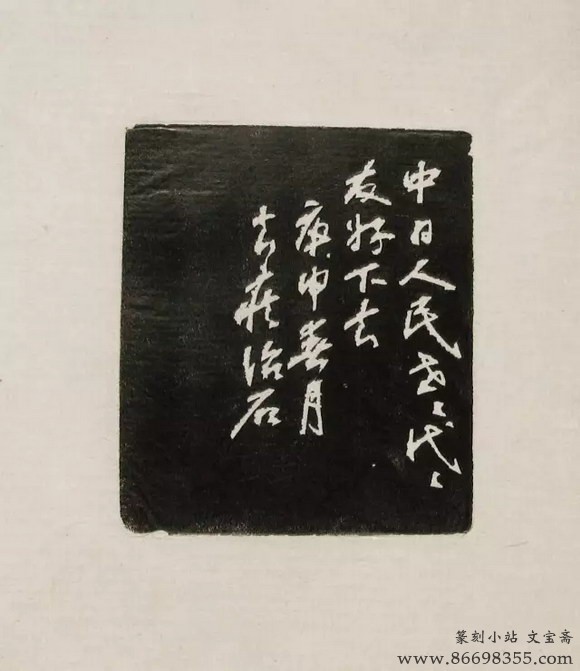 中日人民世〻代〻
友好下去
庚申春月
去疾治石
篆刻小站 文宝斋
www.86698355.com